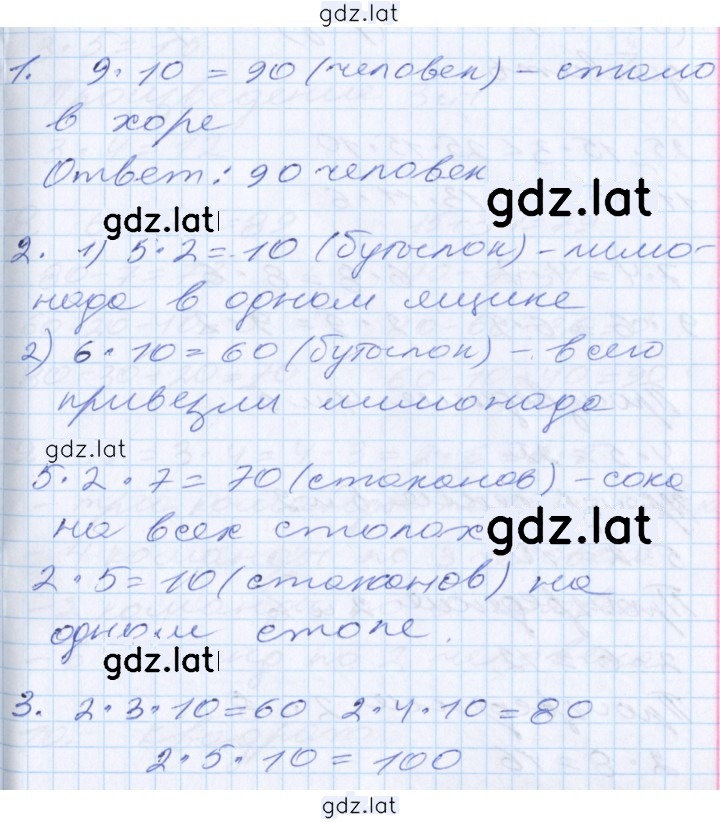 gdz.lat
1. 9·10 = 90 (человек) – стало
в хоре
Ответ: 90 человек
gdz.lat
gdz.lat
2. 1) 5·2 = 10 (бутылок) – лимо-
нада в одном ящике
2) 6·10 = 60 (бутылок) – всего
привезли лимонада
gdz.lat
5·2·7 = 70 (стаканов) – сока
на всех столах
gdz.lat
2·5 = 10 (стаканов) на
одном столе.
gdz.lat
3. 2·3·10 = 60 2·4·10 = 80
2·5·10 = 100
gdz.lat